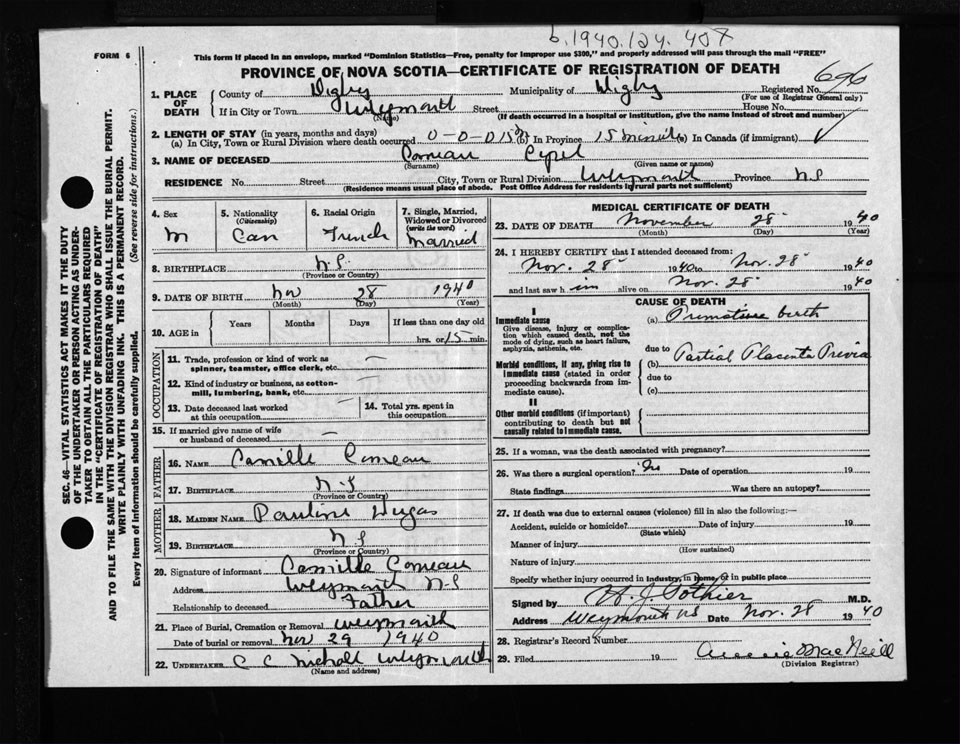 b. 1940. 124. 407
FORM 6
This form if placed in an envelope, marked "Dominion Statistics—Free, penalty for improper use $300," and properly addressed will pass through the mail "FREE"
PROVINCE OF NOVA SCOTIA—CERTIFICATE OF REGISTRATION OF DEATH
696
1. PLACE OF DEATH
County of Digby Municipality of Digby Registered No.
(For use of Registrar General only)
If in City or Town Weymouth Street House No.
(Name) (If death occurred in a hospital or institution, give the name instead of street and number)
2. LENGTH OF STAY (in years, months and days)
(a) In City, Town or Rural Division where death occurred 0-0-0 15m (b) In Province 15 minutes (c) In Canada (if immigrant)
3. NAME OF DECEASED Comeau Cyril
(Surname) (Given name or names)
RESIDENCE No. Street City, Town or Rural Division Weymouth Province N S
(Residence means usual place of abode. Post Office Address for residents in rural parts not sufficient)
4. Sex
M
5. Nationality
(Citizenship)
Can
6. Racial Origin
French
7. Single, Married, Widowed or Divorced
(write the word)
Married
8. BIRTHPLACE N.S.
(Province or Country)
9. DATE OF BIRTH Nov 28 1940
(Month) (Day) (Year)
10. AGE in Years Months Days If less than one day old
hrs. or 15 min.
OCCUPATION
11. Trade, profession or kind of work as spinner, teamster, office clerk, etc. —
12. Kind of industry or business, as cotton-mill, lumbering, bank, etc. —
13. Date deceased last worked at this occupation —
14. Total yrs. spent in this occupation
15. If married give name of wife or husband of deceased —
FATHER
16. NAME Camille Comeau
17. BIRTHPLACE N-S
(Province or Country)
MOTHER
18. MAIDEN NAME Pauline Dugas
19. BIRTHPLACE N S
(Province or Country)
20. Signature of informant Camille Comeau
Address Weymouth N-S
Relationship to deceased Father
21. Place of Burial, Cremation or Removal Weymouth
Date of burial or removal Nov 29 1940
22. UNDERTAKER C C Nicholl Weymouth
(Name and address)
MEDICAL CERTIFICATE OF DEATH
23. DATE OF DEATH November 28 1940
(Month) (Day) (Year)
24. I HEREBY CERTIFY that I attended deceased from:
Nov. 28 1940 to Nov. 28 1940
and last saw h im alive on Nov. 28 1940
CAUSE OF DEATH
I
Immediate cause
Give disease, injury or complication which caused death, not the mode of dying, such as heart failure, asphyxia, asthenia, etc.
(a) Premature birth
due to Partial Placenta Previa
Morbid conditions, if any, giving rise to immediate cause (stated in order proceeding backwards from immediate cause).
(b)
due to
(c)
II
Other morbid conditions (if important) contributing to death but not causally related to immediate cause.
25. If a woman, was the death associated with pregnancy?
26. Was there a surgical operation? No Date of operation 19
State findings Was there an autopsy?
27. If death was due to external causes (violence) fill in also the following:—
Accident, suicide or homicide? Date of injury 19
(State which)
Manner of injury
(How sustained)
Nature of injury
Specify whether injury occurred in industry, in home, or in public place
Signed by H. J. Pothier M.D.
Address Weymouth NS Date Nov. 28 1940
28. Registrar's Record Number
29. Filed 19 MacNeill
(Division Registrar)
SEC. 46—VITAL STATISTICS ACT MAKES IT THE DUTY
OF THE UNDERTAKER OR PERSON ACTING AS UNDERTAKER TO OBTAIN ALL THE PARTICULARS REQUIRED
IN THE "CERTIFICATE OF REGISTRATION OF DEATH"
AND TO FILE THE SAME WITH THE DIVISION REGISTRAR WHO SHALL ISSUE THE BURIAL PERMIT.
WRITE PLAINLY WITH UNFADING INK. THIS IS A PERMANENT RECORD.
Every item of information should be carefully supplied. (See reverse side for instructions.)